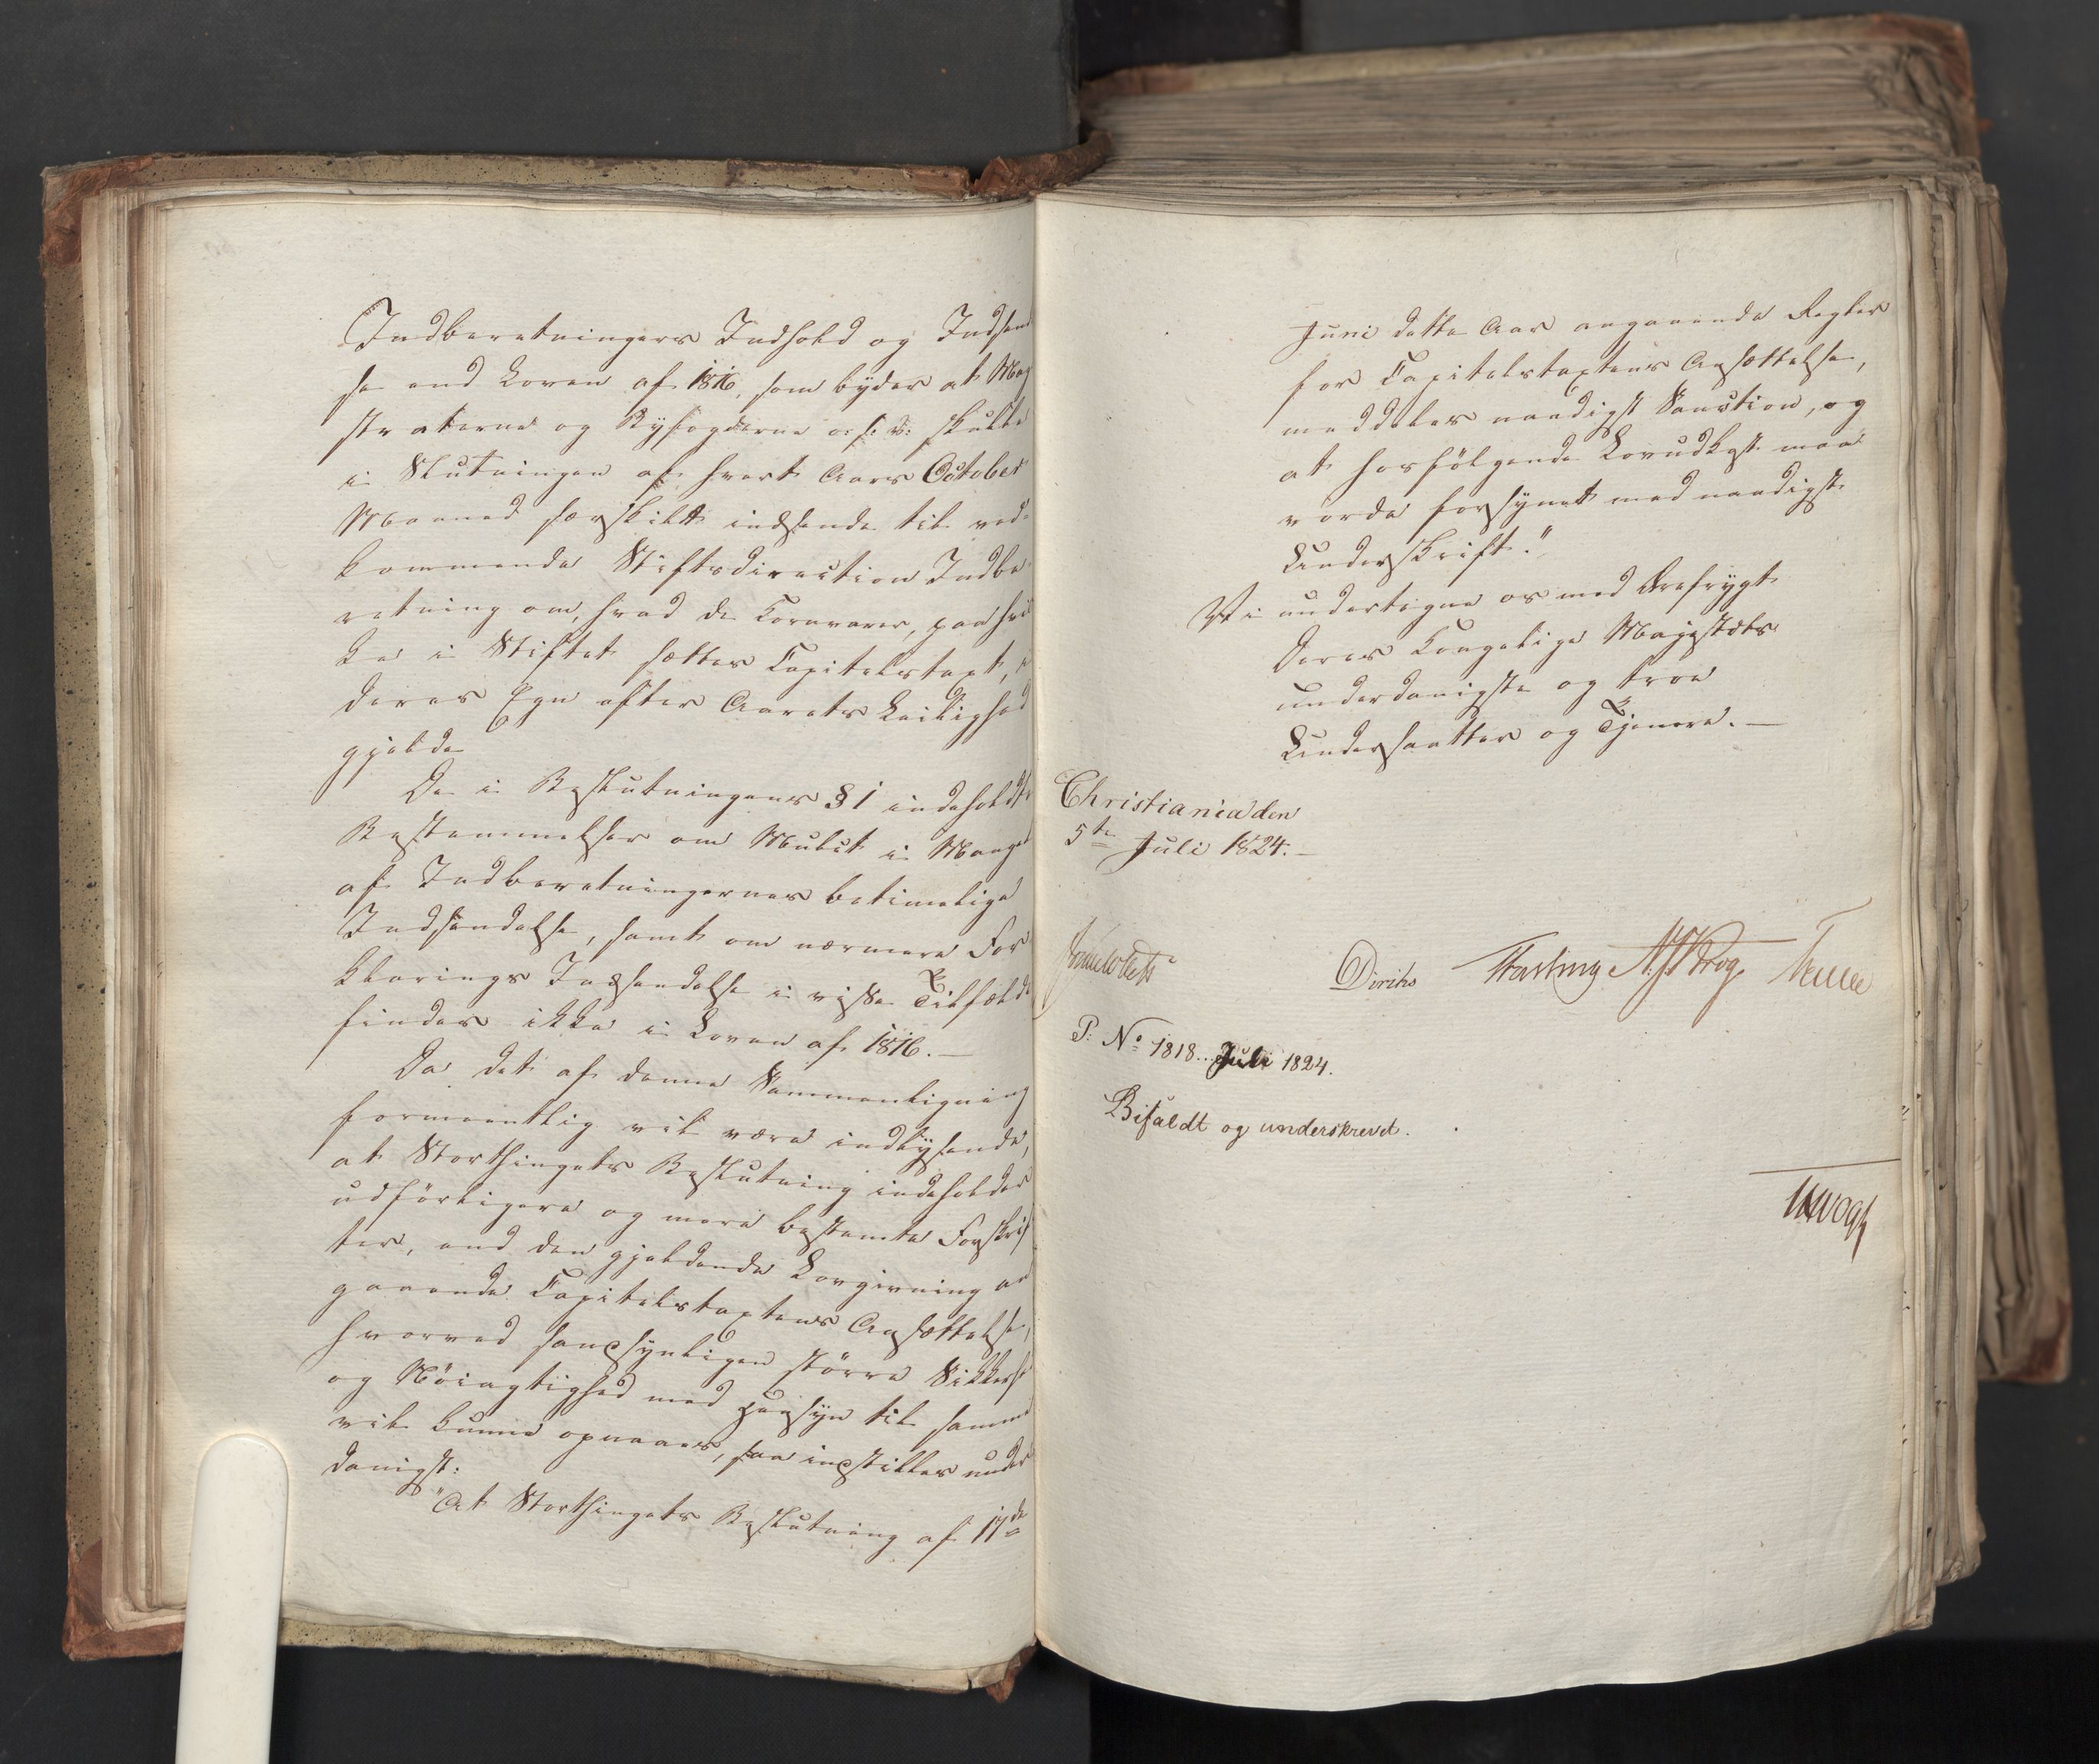 Indberetningers Indhold og Indsend
se end Loven af 1816, som byder at Mag
straterne og Byfogderne o: s: v: skulle
i Slutningen af hvert Aars October
Maaned særskilt indsende til ved-
kommende Stiftsdirection Indbe-
retning om, hvad de Kornvarer, paa hvil
ke i Stiftet sættes Capitelstaxt, i
deres Egn efter Aarets Leilighed
gjelde
De i Beslutningens § 1 indeholdte
Bestemmelser om Mulct i Mangel
af Indberetningernes betimelige
Indsendelse, samt om nærmere For
klarings Indsendelse i visse Tilfælde
findes ikke i Loven af 1816. —
Da det af denne Sammenligning
formeentlig vil være indlysende,
at Storthingets Beslutning indeholder
udførligere og mere bestemte Forskrif
ter, end den gjeldende Lovgivning an
gaaende Capitelstaxtens Ansættelse,
hvorved sandsynligen større Sikkerh
og Nöiagtighed med Hensyn til samme
vil kunne opnaaes, saa indstilles under
danigst:
"At Storthingets Beslutning af 17de
Juni dette Aar angaaende Regler
for Capitelstaxtens Ansættelse,
meddeles naadigst Sanction, og
at hosfölgende Lovudkast maa
vorde forsynet med naadigste
Underskrift."
Vi undertegne os med Ærefrygt
Deres Kongelige Majestæts
underdanigste og troe
Undersaatter og Tjenere. —
Christiania den
5te Juli 1824. —
Diriks Fasting Krog
P: No 1818. Juli 1824.
Bifaldt og underskrevet.